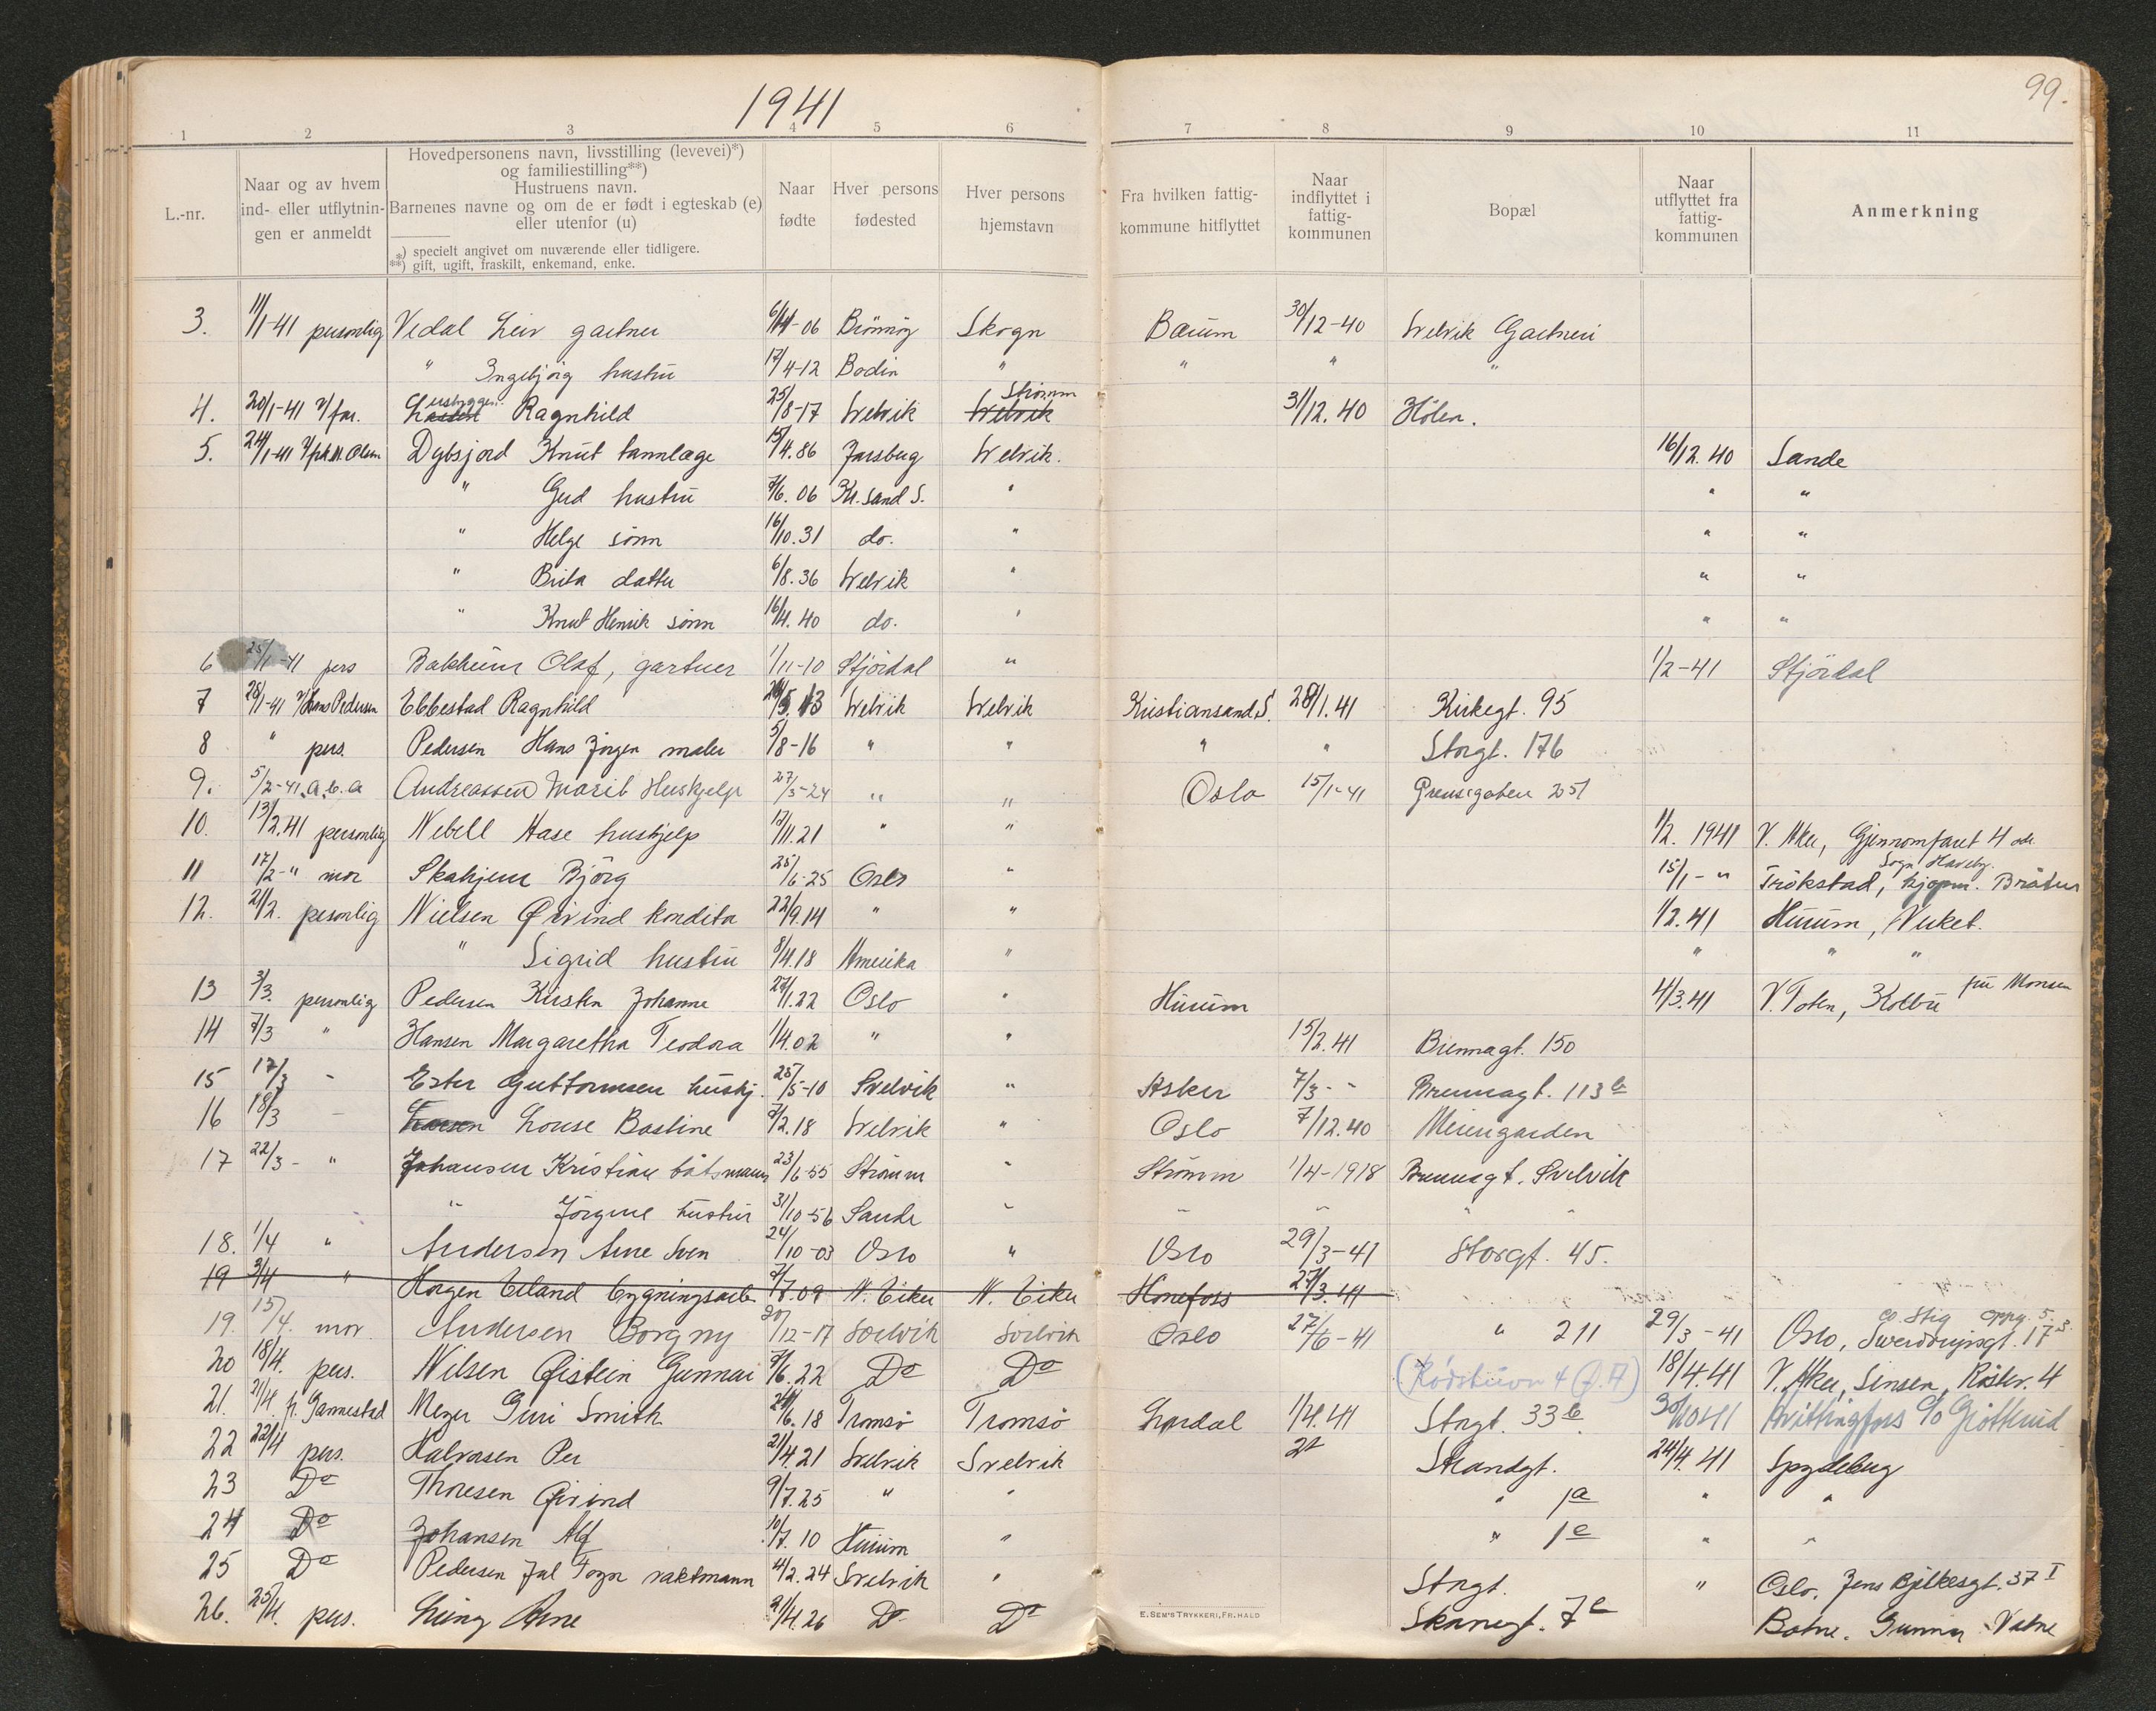 1941
99.
1 2 3 4 5 6 7 8 9 10 11
L.-nr.
Naar og av hvem
ind- eller utflytnin-
gen er anmeldt
Hovedpersonens navn, livsstilling (levevei)*)
og familiestilling**)
Hustruens navn.
Barnenes navne og om de er født i egteskab (e)
eller utenfor (u)
*) specielt angivet om nuværende eller tidligere.
**) gift, ugift, fraskilt, enkemand, enke.
Naar
fødte
Hver persons
fødested
Hver persons
hjemstavn
Fra hvilken fattig-
kommune hitflyttet
Naar
indflyttet i
fattig-
kommunen
Bopæl
Naar
utflyttet fra
fattig-
kommunen
Anmerkning
3. 11/1-41 personlig Vedal Leiv gartner 6/4-06 Brönnöy Skogn Bærum 30/12-40 Svelvik Gartneri
" Ingebjörg hustru 17/4-12 Bodin " " " "
4. 20/1-41 v/ far. Ragnhild 25/8-17 Svelvik Svelvik Strömm 31/12.40 Hölen.
5. 24/1-41 Olsen Dybsjord Knut tannlæge 15/4.86 Svelvik. 16/12.40 Sande
" Gud hustru 7/6.06 Kr.sand S. " " "
" Helge sönn 16/10.31 do. " " "
" Brita datter 6/8.36 Svelvik " " "
" Knut Henrik sönn 16/4.40 do. " " "
6 25/1-41 pers Bakheim Olaf, gartner 1/11-10 Stjördal " 1/2-41 Stjördal
7 28/1-41 v/ Hans Pedersen Ebbestad Ragnhild 13 Svelvik Svelvik Kristiansand S. 28/1.41 Kirkegt. 95
8 " pers. Pedersen Hans Jörgen maler 5/8-16 " " " " Storgt. 176
9. 5/2-41 Andreassen Marit Hushjelp 27/5-24 " " Oslo 15/1-41 Grensegaten 251
10. 13/2.41 personlig Nebell Aase hushjelp 12/11.21 " " 1/2. 1941 V. Aker, Gjennomfaret 4
Sogn Haveby.
11 17/2-" mor Skahjem Björg 25/6-25 Oslo " 15/1-" Trökstad, kjøpm. Bråten
12. 21/2. personlig Nielsen Øivind konditor 22/9.14 " " 1/2.41 Hurum, Verket.
" Sigrid hustru 8/4.18 Amerika " " " "
13 3/3. personlig Pedersen Kirsten Johanne 27/1.22 Oslo " Hurum 4/3.41 V. Toten, Kolbu fru Monsen
14 7/3 " Hansen Margaretha Teodora 1/4.02 " " 15/2.41 Brennagt. 150
15 17/3 - Ester Guttormsen hushj. 25/5-10 Svelvik " Asker 7/3 - - Brennagt. 113 b
16 18/3 - Louise Bastine 7/2.18 Svelvik " Oslo 7/12.40 Meiergaarden
17 22/3 - " Johansen Kristian båtsmann 23/6-55 Strömm " Strömm 1/4-1918 Brennagt. Svelvik
" Jörgine hustru 31/10-56 Sande " " " " "
18. 1/4 " Andersen Arne Sven 24/10-03 Oslo " Oslo 29/3-41 Storgt. 45.
19 3/4 " Hagen Erland bygningsarb. 7/7.09 N. Eiker N. Eiker Hönefoss 27/3.41
19. 15/4. mor Andersen Borgny 20/12-17 Svelvik Svelvik Oslo 27/6-41 " 211 29/3-41 Oslo, Sverdrupsgt. 17
c/o Stig oppg. 5.
20 18/4. pers. Nilsen Øistein Gunnar 7/6.22 Do Do 18/4.41 V. Aker, Sinsen, Råslv. 4
21. 21/4. fr. Gannestad Meyer Guri Smith 6.18 Tromsö Tromsö Lardal 1/4.41 Storgt. 33 b. 30/10 41 Hvittingfoss c/o Grötterud
22 22/4 pers. Halvorsen Per 2/4.21 Svelvik Svelvik Strandgt. 24/4.41 Spydeberg
23 Do Thoresen Øivind 9/7.25 " " " 1a " "
24 Do Johansen Alf 10/7.10 Hurum " " 1e " "
25 Do Pedersen Jul Togn vaktmann 4/2.24 Svelvik " Storgt. " Oslo, Jens Bjelkesgt. 37 I
26. 25/4. pers. Liing Arne 2/4.26 Do Do Skanegt. 7 e Botne. Gunnar Vatne
E. SEM'S TRYKKERI, FR.HALD